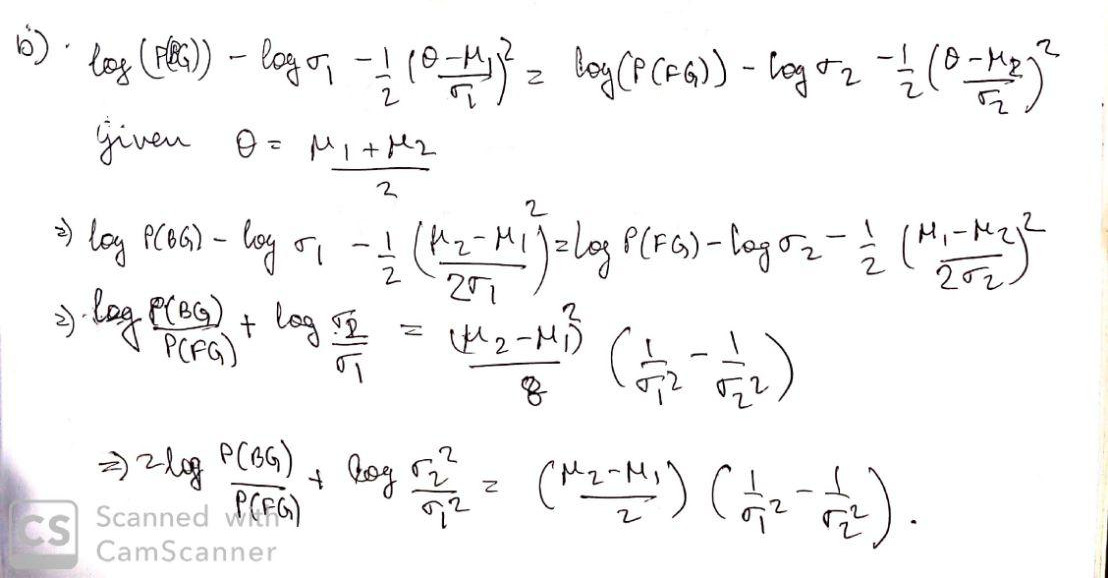 b). log(P(BG)) - log σ₁ - 1/2 ((θ-μ₁)/σ₁)² = log(P(FG)) - log σ₂ - 1/2 ((θ-μ₂)/σ₂)²
Given θ = (μ₁+μ₂)/2
⇒) log P(BG) - log σ₁ - 1/2 ((μ₂-μ₁)/2σ₁)² = log P(FG) - log σ₂ - 1/2 ((μ₁-μ₂)/2σ₂)²
⇒) log P(BG)/P(FG) + log σ₂/σ₁ = (μ₂-μ₁)²/8 (1/σ₁² - 1/σ₂²)
⇒) 2 log P(BG)/P(FG) + log σ₂²/σ₁² = ((μ₂-μ₁)/2) (1/σ₁² - 1/σ₂²).
CS Scanned with
CamScanner